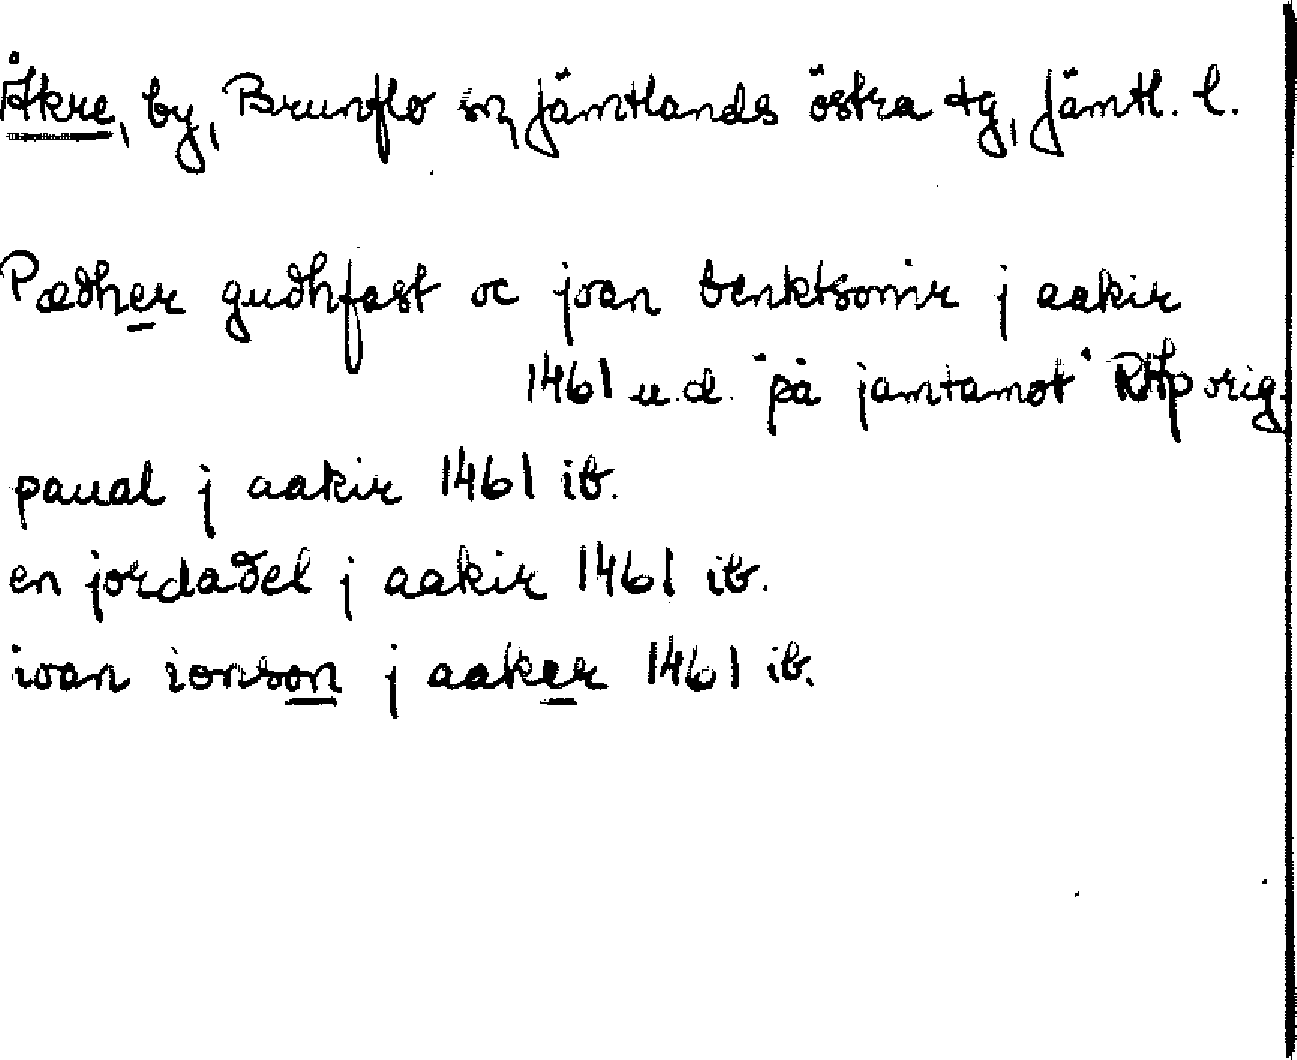 Åkre, by, Brunflo sn, Jämtlands östra tg, Jämtl. l.
Pædher gudhfast oc joan benktsonir j aakir
1461 u.d. "på jamtamot" RAp orig.
paual j aakir 1461 ib.
en jordadel j aakir 1461 ib.
ioan ionson j aaker 1461 ib.